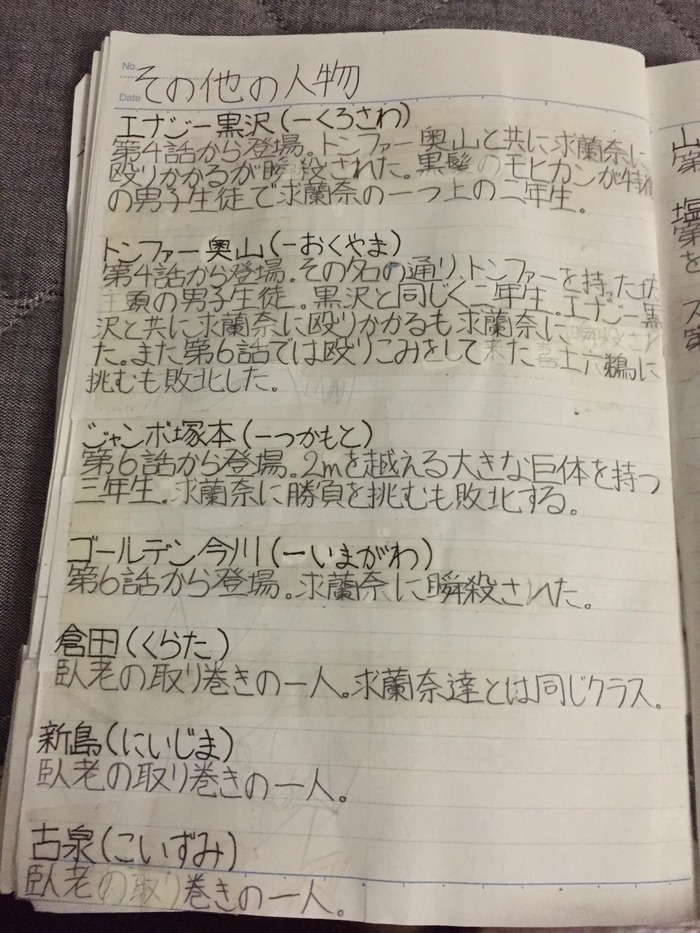 No.
Date
その他の人物
エナジー黒沢(ーくろさわ)
第4話から登場。トンファー奥山と共に求蘭奈に
殴りかかるが瞬殺された。黒髪のモヒカンが特徴
の男子生徒で求蘭奈の一つ上の二年生。
トンファー奥山(ーおくやま)
第4話から登場。その名の通り、トンファーを持った
頭の男子生徒。黒沢と同じく二年生。エナジー黒
沢と共に求蘭奈に殴りかかるも求蘭奈に瞬殺され
た。また第6話では殴りこみをして来た喜士六鵜に
挑むも敗北した。
ジャンボ塚本(ーつかもと)
第6話から登場。2mを越える大きな巨体を持つ
三年生。求蘭奈に勝負を挑むも敗北する。
ゴールデン今川(ーいまがわ)
第6話から登場。求蘭奈に瞬殺された。
倉田(くらた)
臥老の取り巻きの一人。求蘭奈達とは同じクラス。
新島(にいじま)
臥老の取り巻きの一人。
古泉(こいずみ)
臥老の取り巻きの一人。